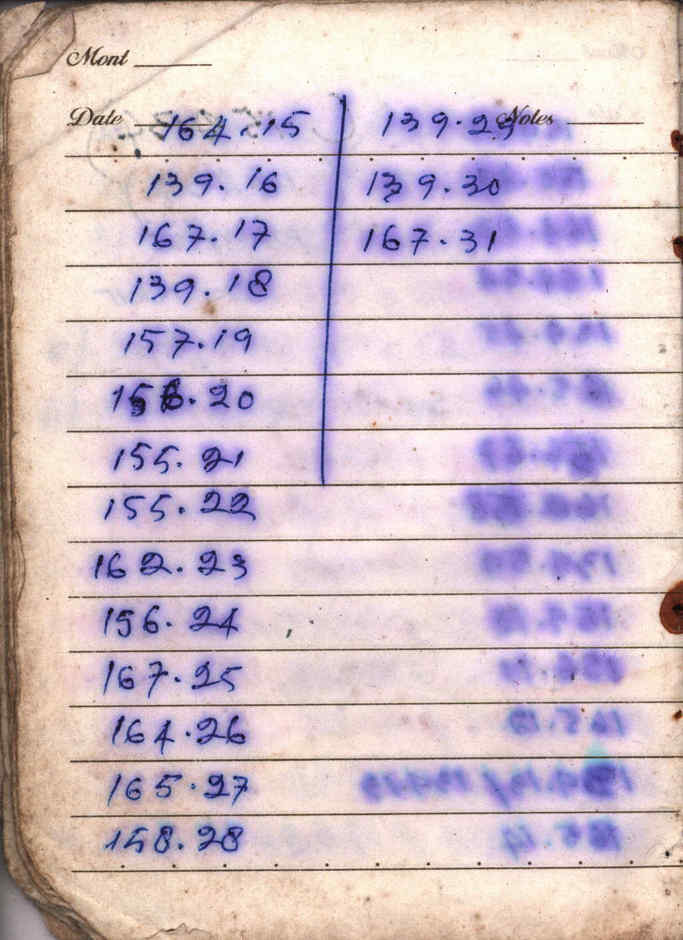 Mont
Date Notes
164.15 139.29
139.16 139.30
167.17 167.31
139.18
157.19
156.20
155.21
155.22
162.23
156.24
167.25
164.26
165.27
158.28